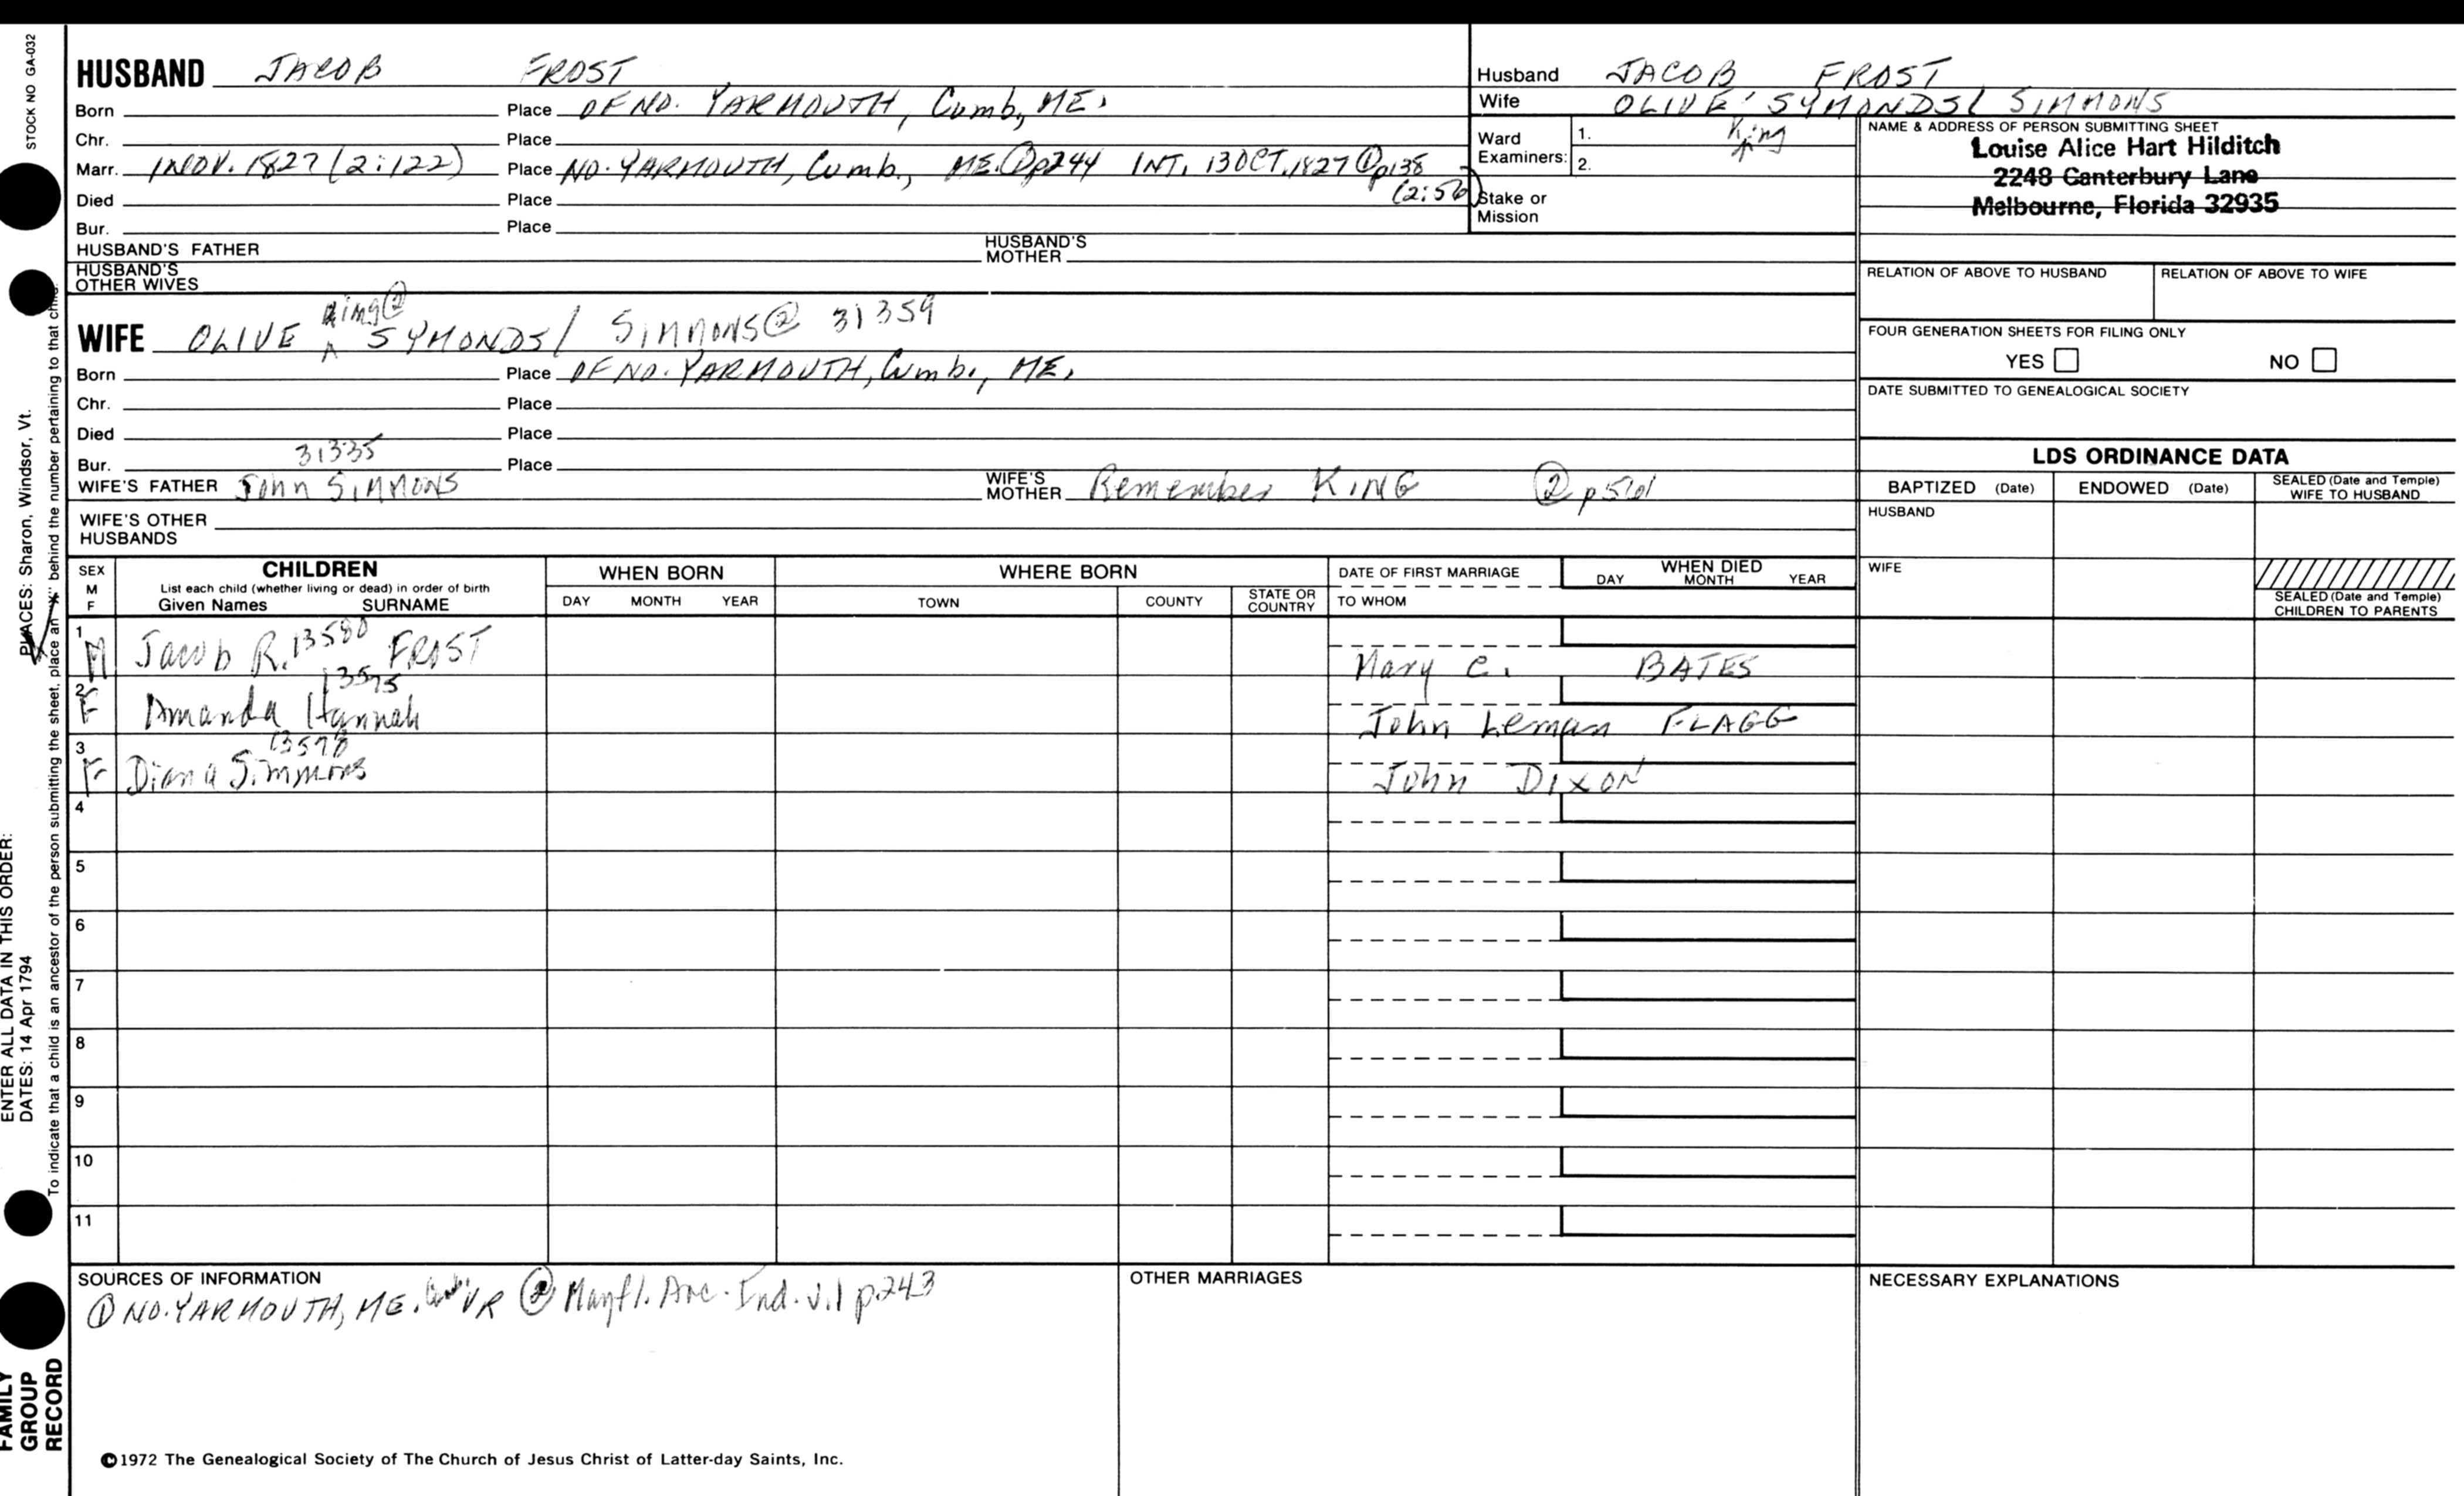 STOCK NO GA-032
HUSBAND JACOB FROST
Born Place OF NO. YARMOUTH, Cumb., ME.
Chr. Place
Marr. 1 NOV. 1827 (2:122) Place NO. YARMOUTH, Cumb., ME. ① p244 INT. 13 OCT. 1827 ① p138
(2:56)
Died Place
Bur. Place
HUSBAND'S FATHER HUSBAND'S MOTHER
HUSBAND'S OTHER WIVES
King②
WIFE OLIVE ^ SYMONDS/ SIMMONS② 31359
Born Place OF NO. YARMOUTH, Cumb., ME.
Chr. Place
Died Place
31335
Bur. Place
WIFE'S FATHER John SIMMONS WIFE'S MOTHER Remember KING ②
WIFE'S OTHER HUSBANDS
Husband JACOB FROST
Wife OLIVE SYMONDS/ SIMMONS
King
Ward Examiners: 1.
2.
Stake or Mission
NAME & ADDRESS OF PERSON SUBMITTING SHEET
Louise Alice Hart Hilditch
2248 Canterbury Lane
Melbourne, Florida 32935
RELATION OF ABOVE TO HUSBAND RELATION OF ABOVE TO WIFE
FOUR GENERATION SHEETS FOR FILING ONLY
YES NO
DATE SUBMITTED TO GENEALOGICAL SOCIETY
LDS ORDINANCE DATA
BAPTIZED (Date) ENDOWED (Date) SEALED (Date and Temple) WIFE TO HUSBAND
HUSBAND
WIFE
SEALED (Date and Temple) CHILDREN TO PARENTS
SEX M F
CHILDREN
List each child (whether living or dead) in order of birth
Given Names SURNAME
WHEN BORN
DAY MONTH YEAR
WHERE BORN
TOWN COUNTY STATE OR COUNTRY
DATE OF FIRST MARRIAGE
TO WHOM
WHEN DIED
DAY MONTH YEAR
1 M Jacob R. 13580 FROST Mary C. BATES
13575
2 F Amanda Hannah John Leman FLAGG
13578
3 F Diana Simmons John DIXON
4
5
6
7
8
9
10
11
SOURCES OF INFORMATION
① NO. YARMOUTH, ME. VR ② Mayfl. Anc. Ind. v.1 p.243
OTHER MARRIAGES
NECESSARY EXPLANATIONS
©1972 The Genealogical Society of The Church of Jesus Christ of Latter-day Saints, Inc.
PLACES: Sharon, Windsor, Vt.
To indicate that a child is an ancestor of the person submitting the sheet, place an "X" behind the number pertaining to that child.
ENTER ALL DATA IN THIS ORDER:
DATES: 14 Apr 1794
FAMILY
GROUP
RECORD